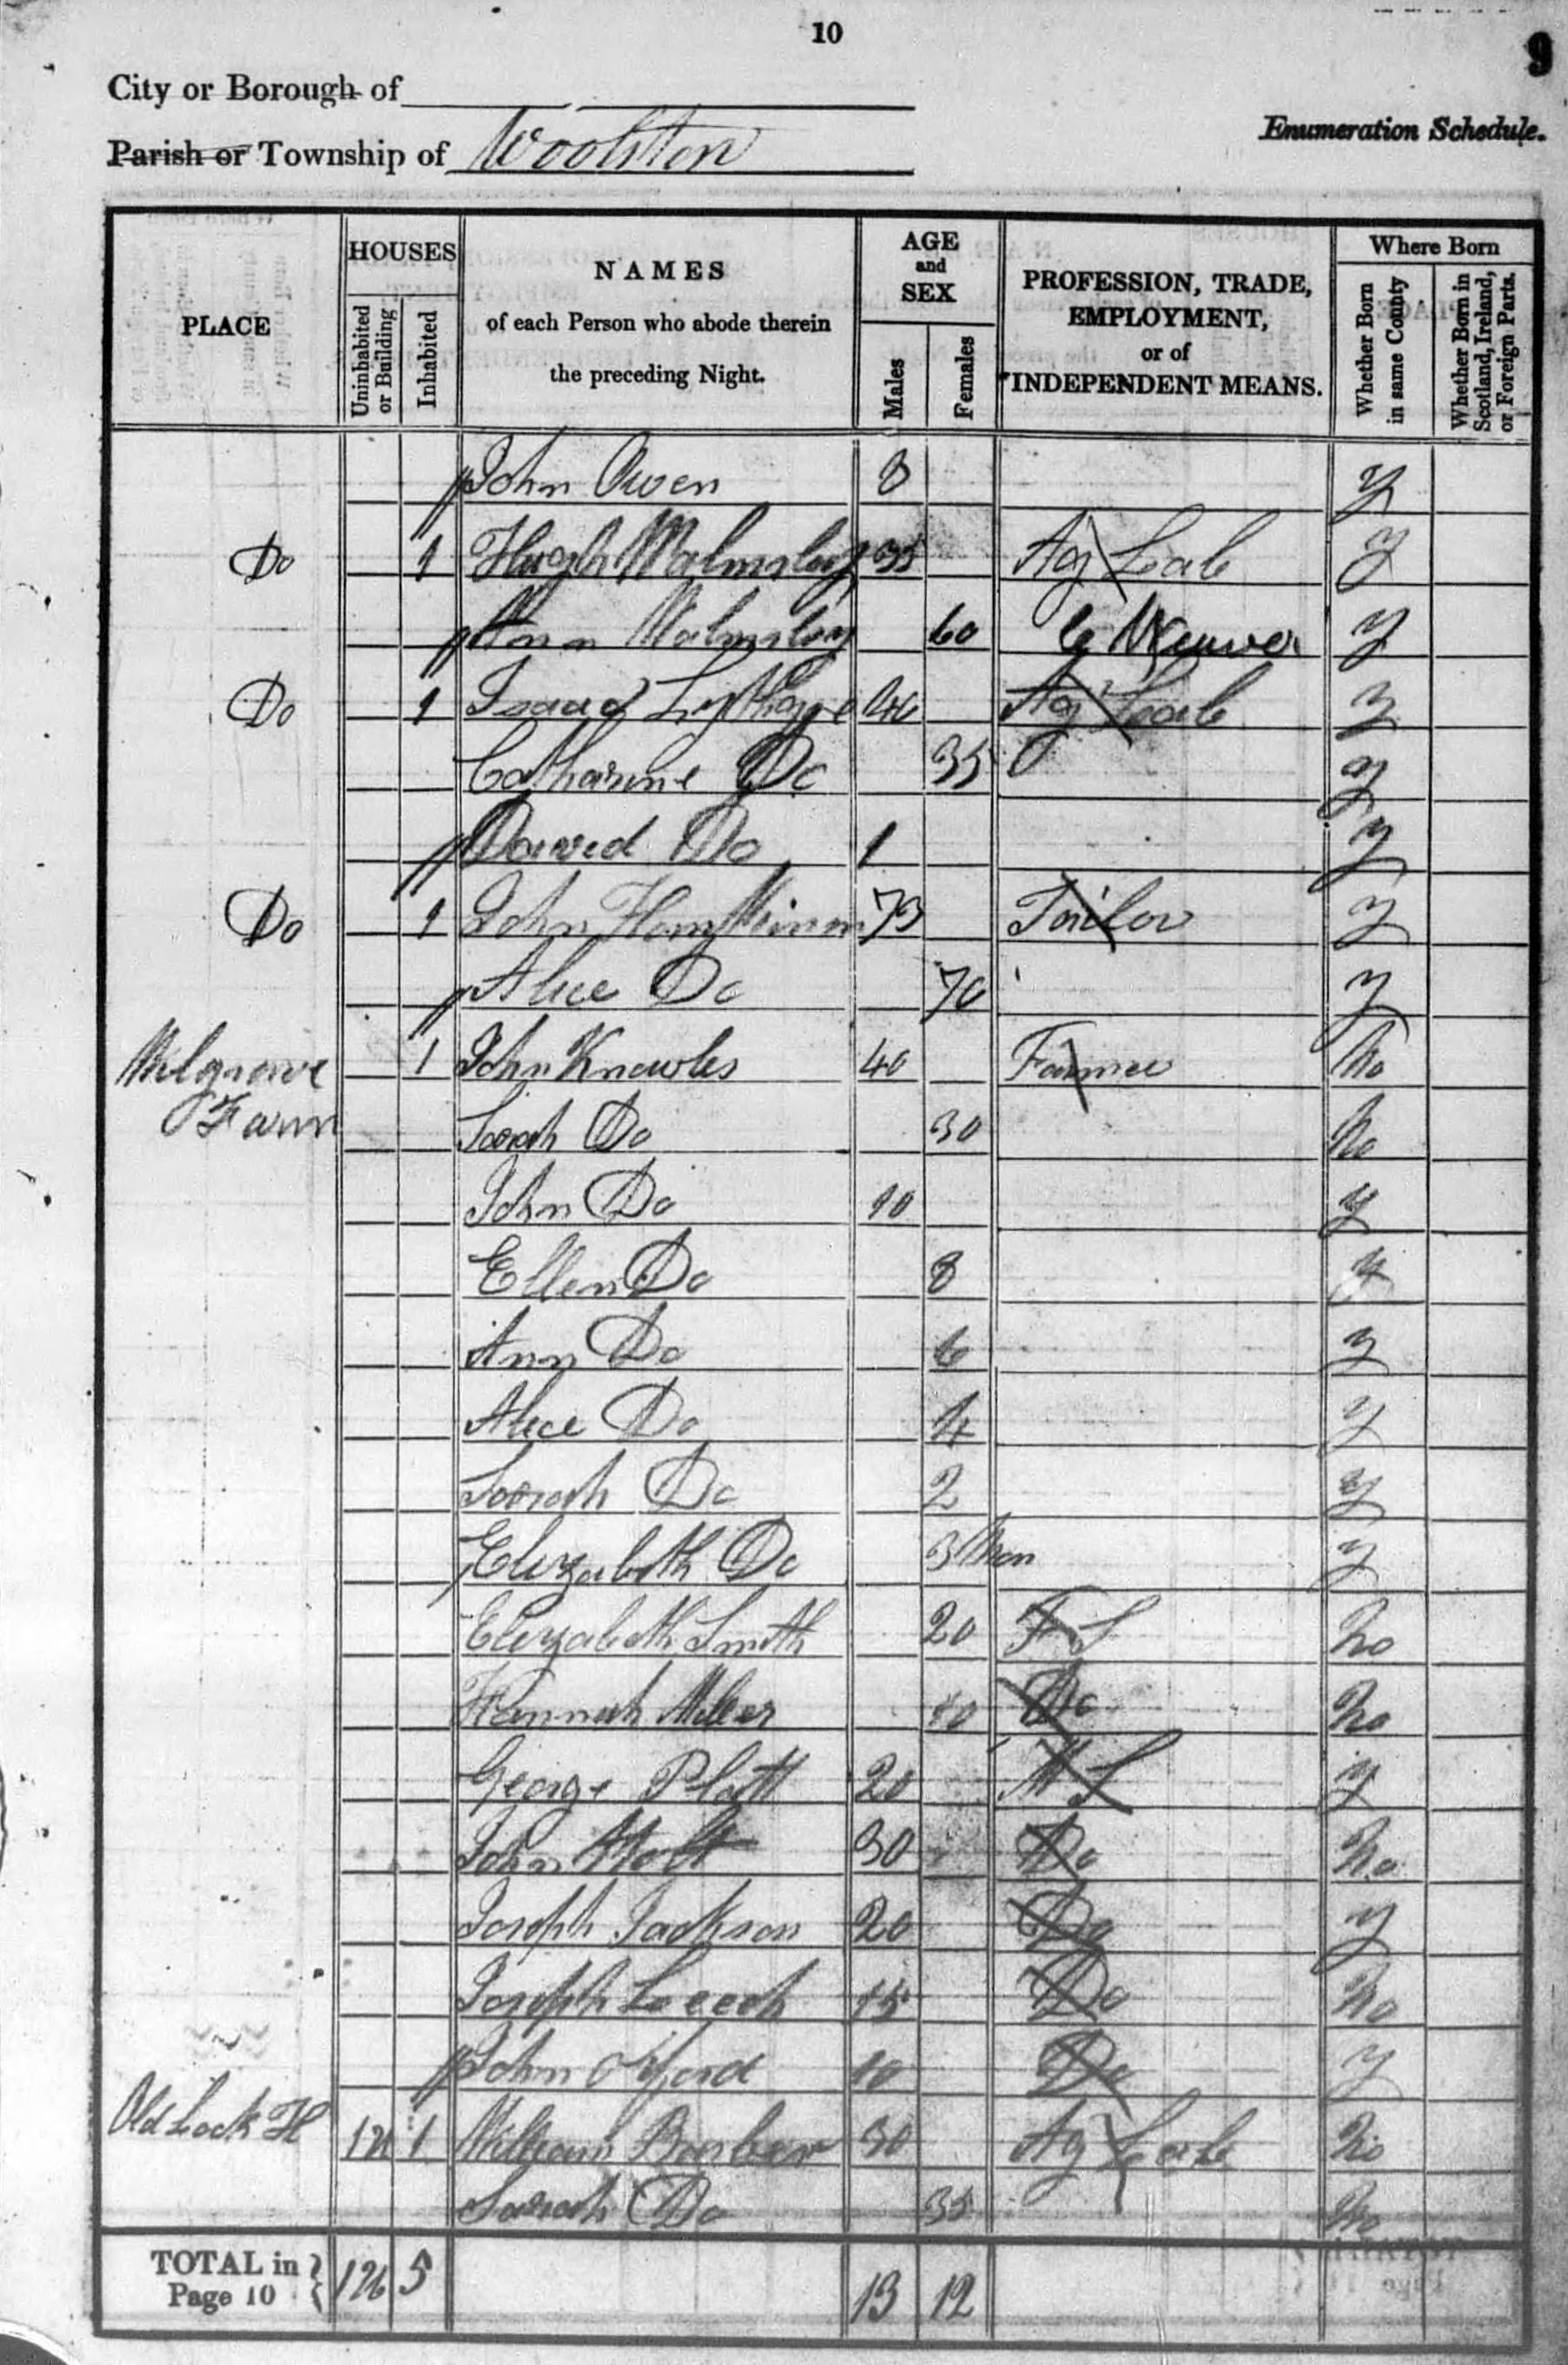 10
9
City or Borough of
Parish or Township of Woolston
Enumeration Schedule.
PLACE
HOUSES
Uninhabited or Building
Inhabited
NAMES
of each Person who abode therein
the preceding Night.
AGE
and
SEX
Males
Females
PROFESSION, TRADE,
EMPLOYMENT,
or of
INDEPENDENT MEANS.
Where Born
Whether Born in same County
Whether Born in Scotland, Ireland, or Foreign Parts.
John Owen 8 y
Do 1 Hugh Walmsley 35 Ag Lab y
Ann Walmsley 60 C Weaver y
Do 1 Isaac Lythgoe 46 Ag Lab y
Catharine Do 35 y
David Do 1 y
Do 1 John 73 Tailor y
Alice Do 70 y
Farm 1 John Knowles 40 Farmer No
Sarah Do 30 No
John Do 10 y
Ellen Do 8 y
Ann Do 6 y
Alice Do 4 y
Sarah Do 2 y
Elizabeth Do 3 Mon y
Elizabeth Smith 20 F S No
Hannah Miller Do No
George Platt 20 M S y
John Holt 30 Do No
Joseph Jackson 20 Do y
Joseph Leech 15 Do No
John 10 Do y
Old Lock H 1 William Barber 30 Ag Lab No
Sarah Do 35 No
TOTAL in
Page 10 5 13 12